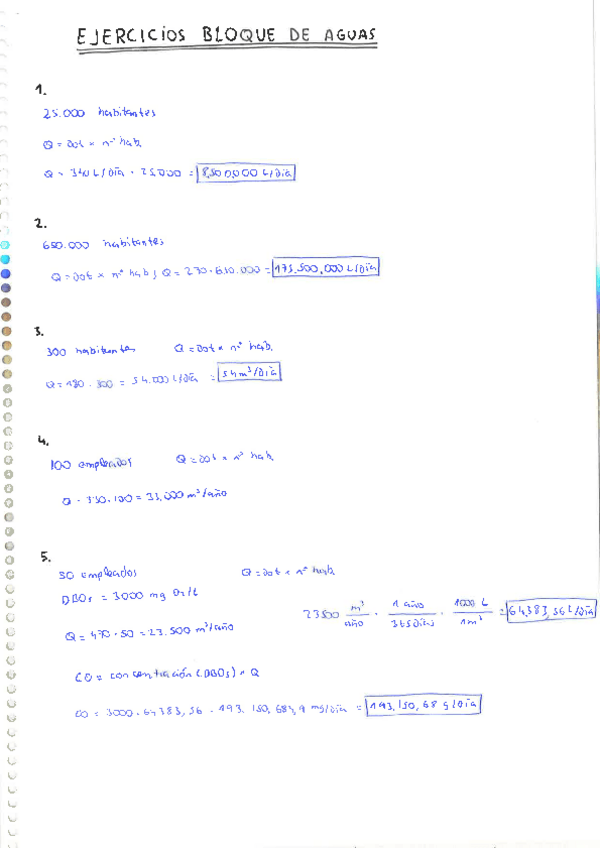 EJERCICIOS BLOQUE DE AGUAS
1.
25.000 habitantes
Q = dot × nº hab.
Q = 340 L/Día · 25000 = 8,500,000 L/Día
2.
650.000 habitantes
Q = dot × nº hab; Q = 270 · 650.000 = 175.500,000 L/Día
3.
300 habitantes Q = dot × nº hab.
Q = 180 · 300 = 54.000 L/Día = 54 m³/Día
4.
100 empleados Q = dot × nº hab.
Q = 330 · 100 = 33.000 m³/año
5.
50 empleados Q = dot × nº hab.
DBO₅ = 3000 mg O₂/L
23500 m³/año · 1 año/365 Días · 1000 L/1 m³ = 64,383,56 L/Día
Q = 470 · 50 = 23.500 m³/año
CO = concentración (DBO₅) × Q
CO = 3000 · 64383,56 = 193.150,684,9 mg/Día = 193,150,68 g/Día